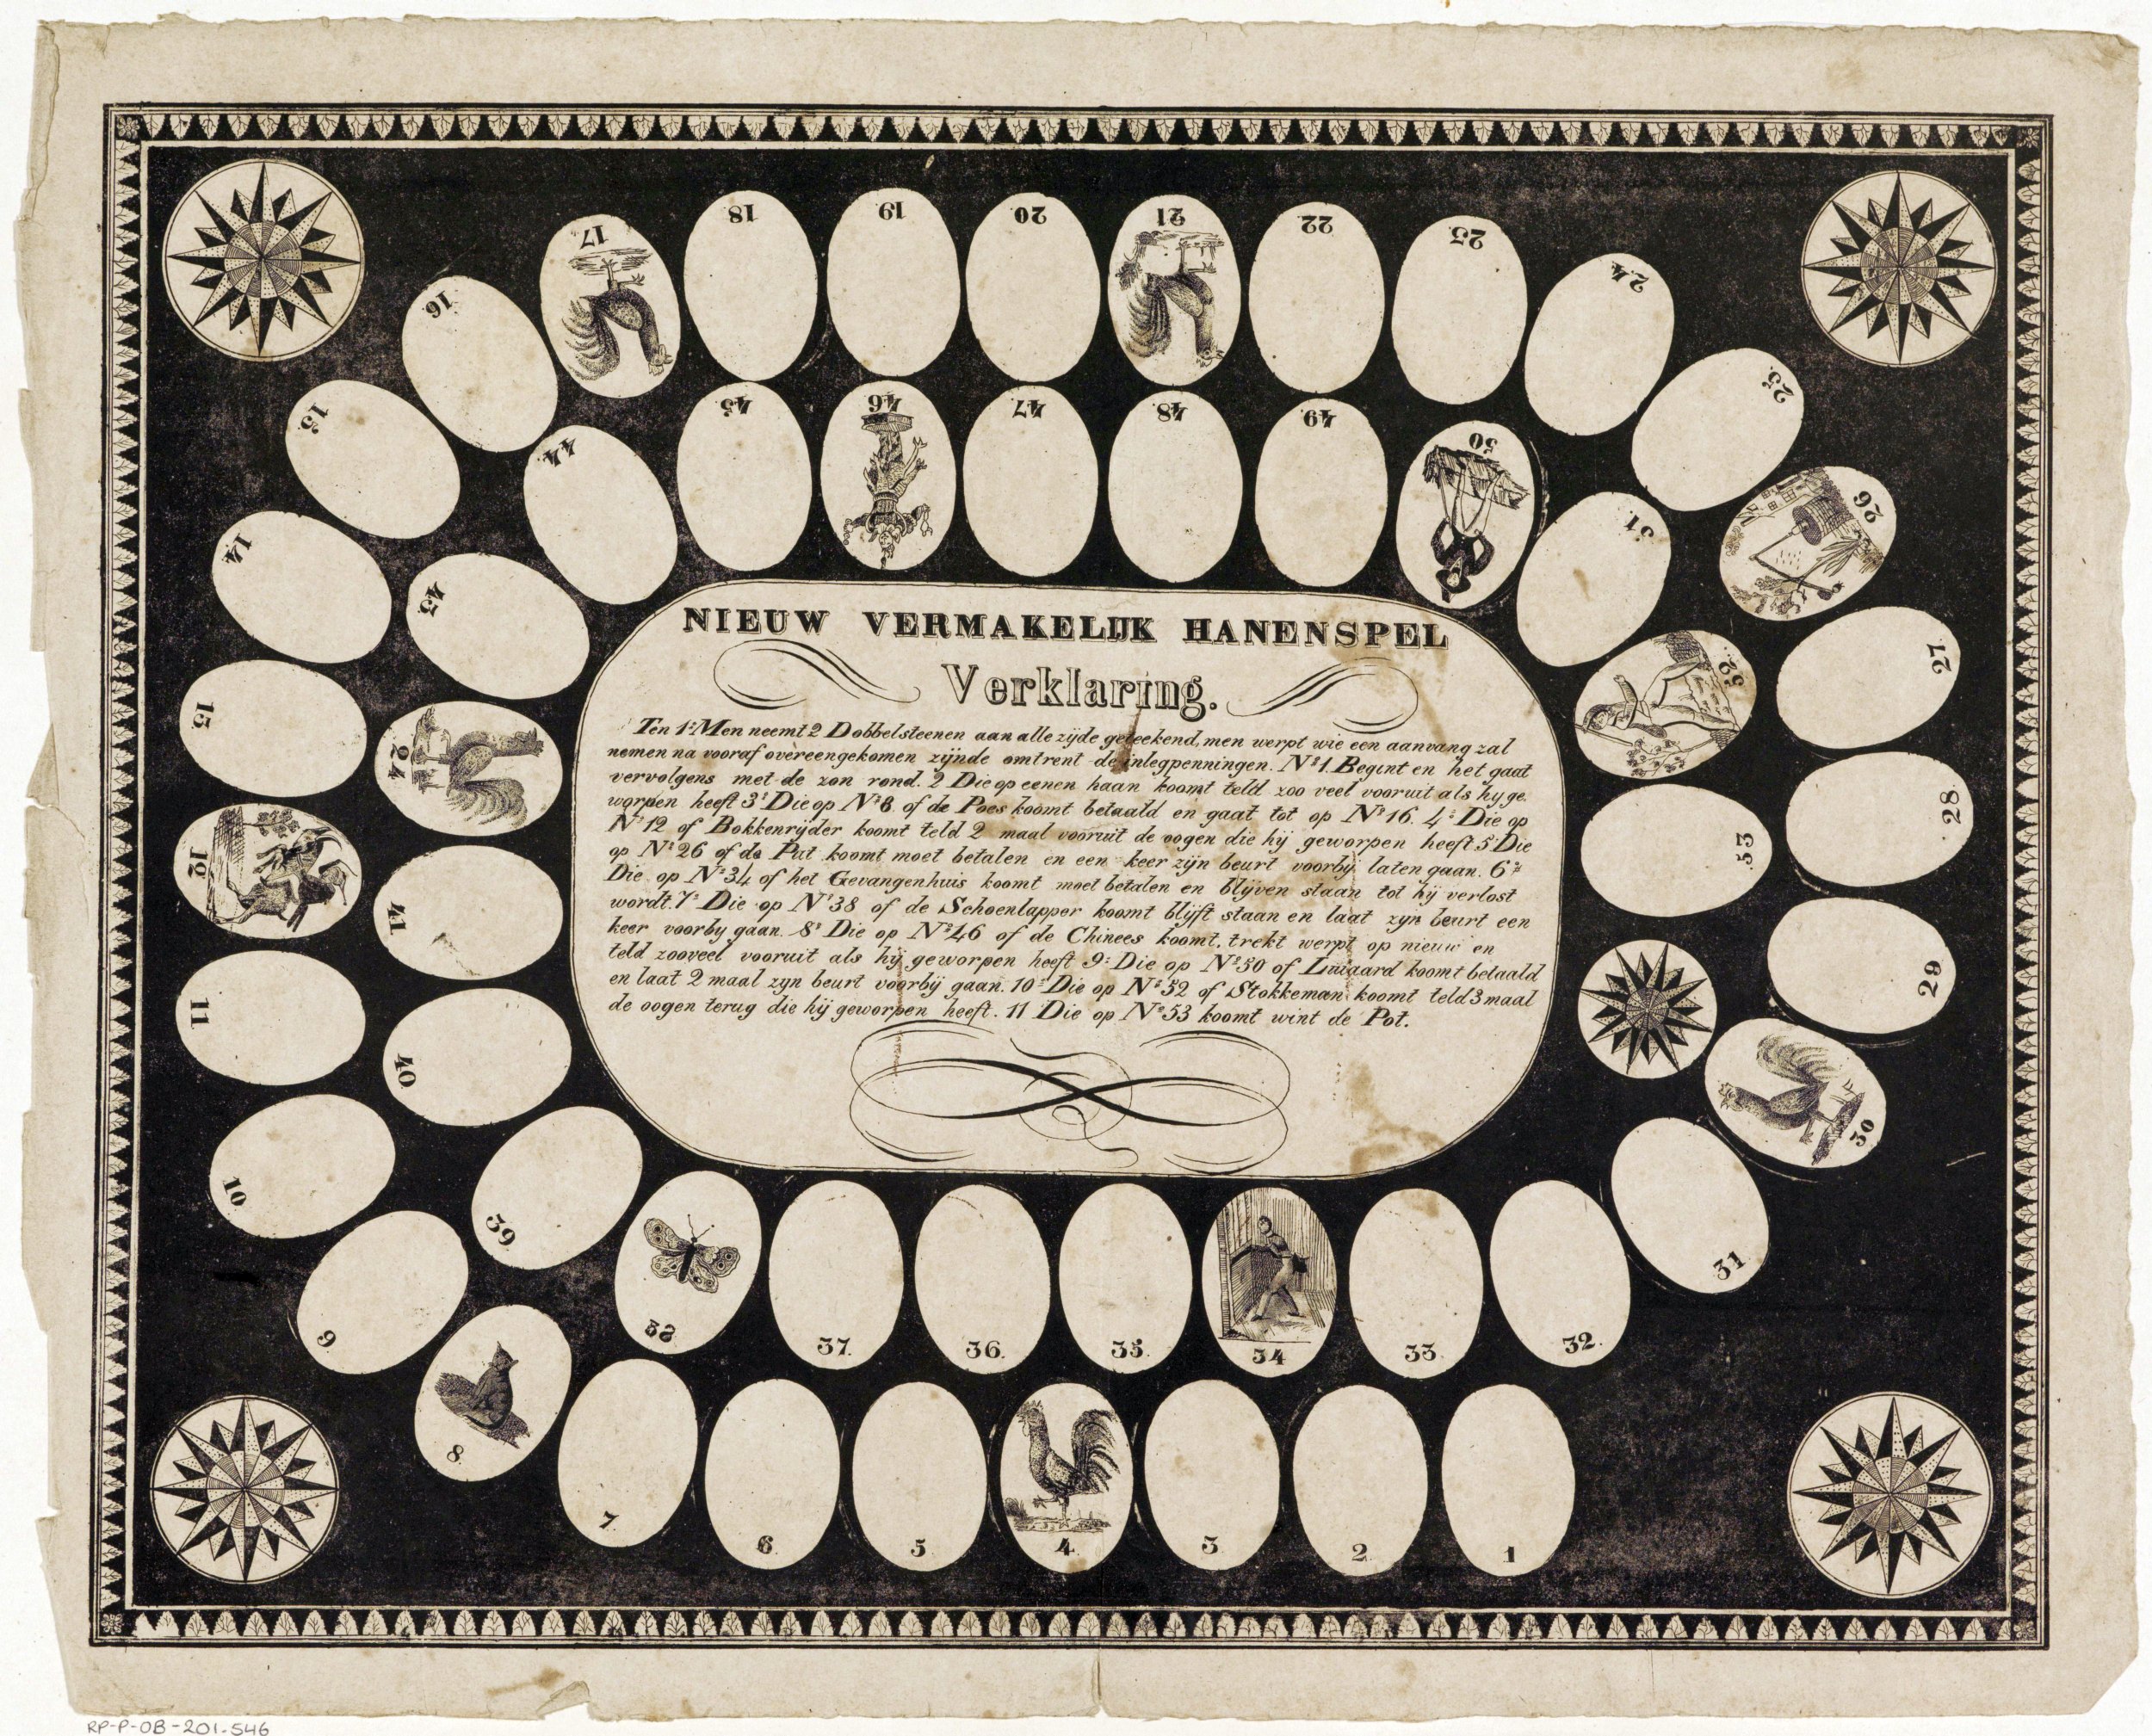 NIEUW VERMAKELIJK HANENSPEL
Verklaring.
Ten 1e Men neemt 2 Dobbelsteenen aan alle zijde geteekend, men werpt wie een aanvang zal
nemen na vooraf overeengekomen zijnde omtrent de inlegpenningen. No 1. Begint en het gaat
vervolgens met de zon rond. 2 Die op eenen haan koomt teld zoo veel vooruit als hy ge
worpen heeft 3e Die op No 8 of de Poes koomt betaald en gaat tot op No 16. 4e Die op
No 12 of Bokkenrijder koomt teld 2 maal vooruit de oogen die hij geworpen heeft 5 Die
op No 26 of de Put koomt moet betalen en een keer zijn beurt voorbij laten gaan. 6e
Die op No 34 of het Gevangenhuis koomt moet betalen en blijven staan tot hij verlost
wordt. 7e Die op No 38 of de Schoenlapper koomt blijft staan en laat zyn beurt een
keer voorby gaan. 8e Die op No 46 of de Chinees koomt, trekt werpt op nieuw en
teld zooveel vooruit als hij geworpen heeft 9e Die op No 50 of Luiaard koomt betaald
en laat 2 maal zyn beurt voorbij gaan. 10e Die op No 52 of Stokkeman koomt teld 3 maal
de oogen terug die hij geworpen heeft. 11 Die op No 53 koomt wint de Pot.
1
2
3
4
5
6
7
8
9
10
11
12
13
14
15
16
17
18
19
20
21
22
23
24
25
26
27
28
29
30
31
32
33
34
35
36
37
38
39
40
41
42
43
44
45
46
47
48
49
50
51
52
53
RP-P-OB-201.546